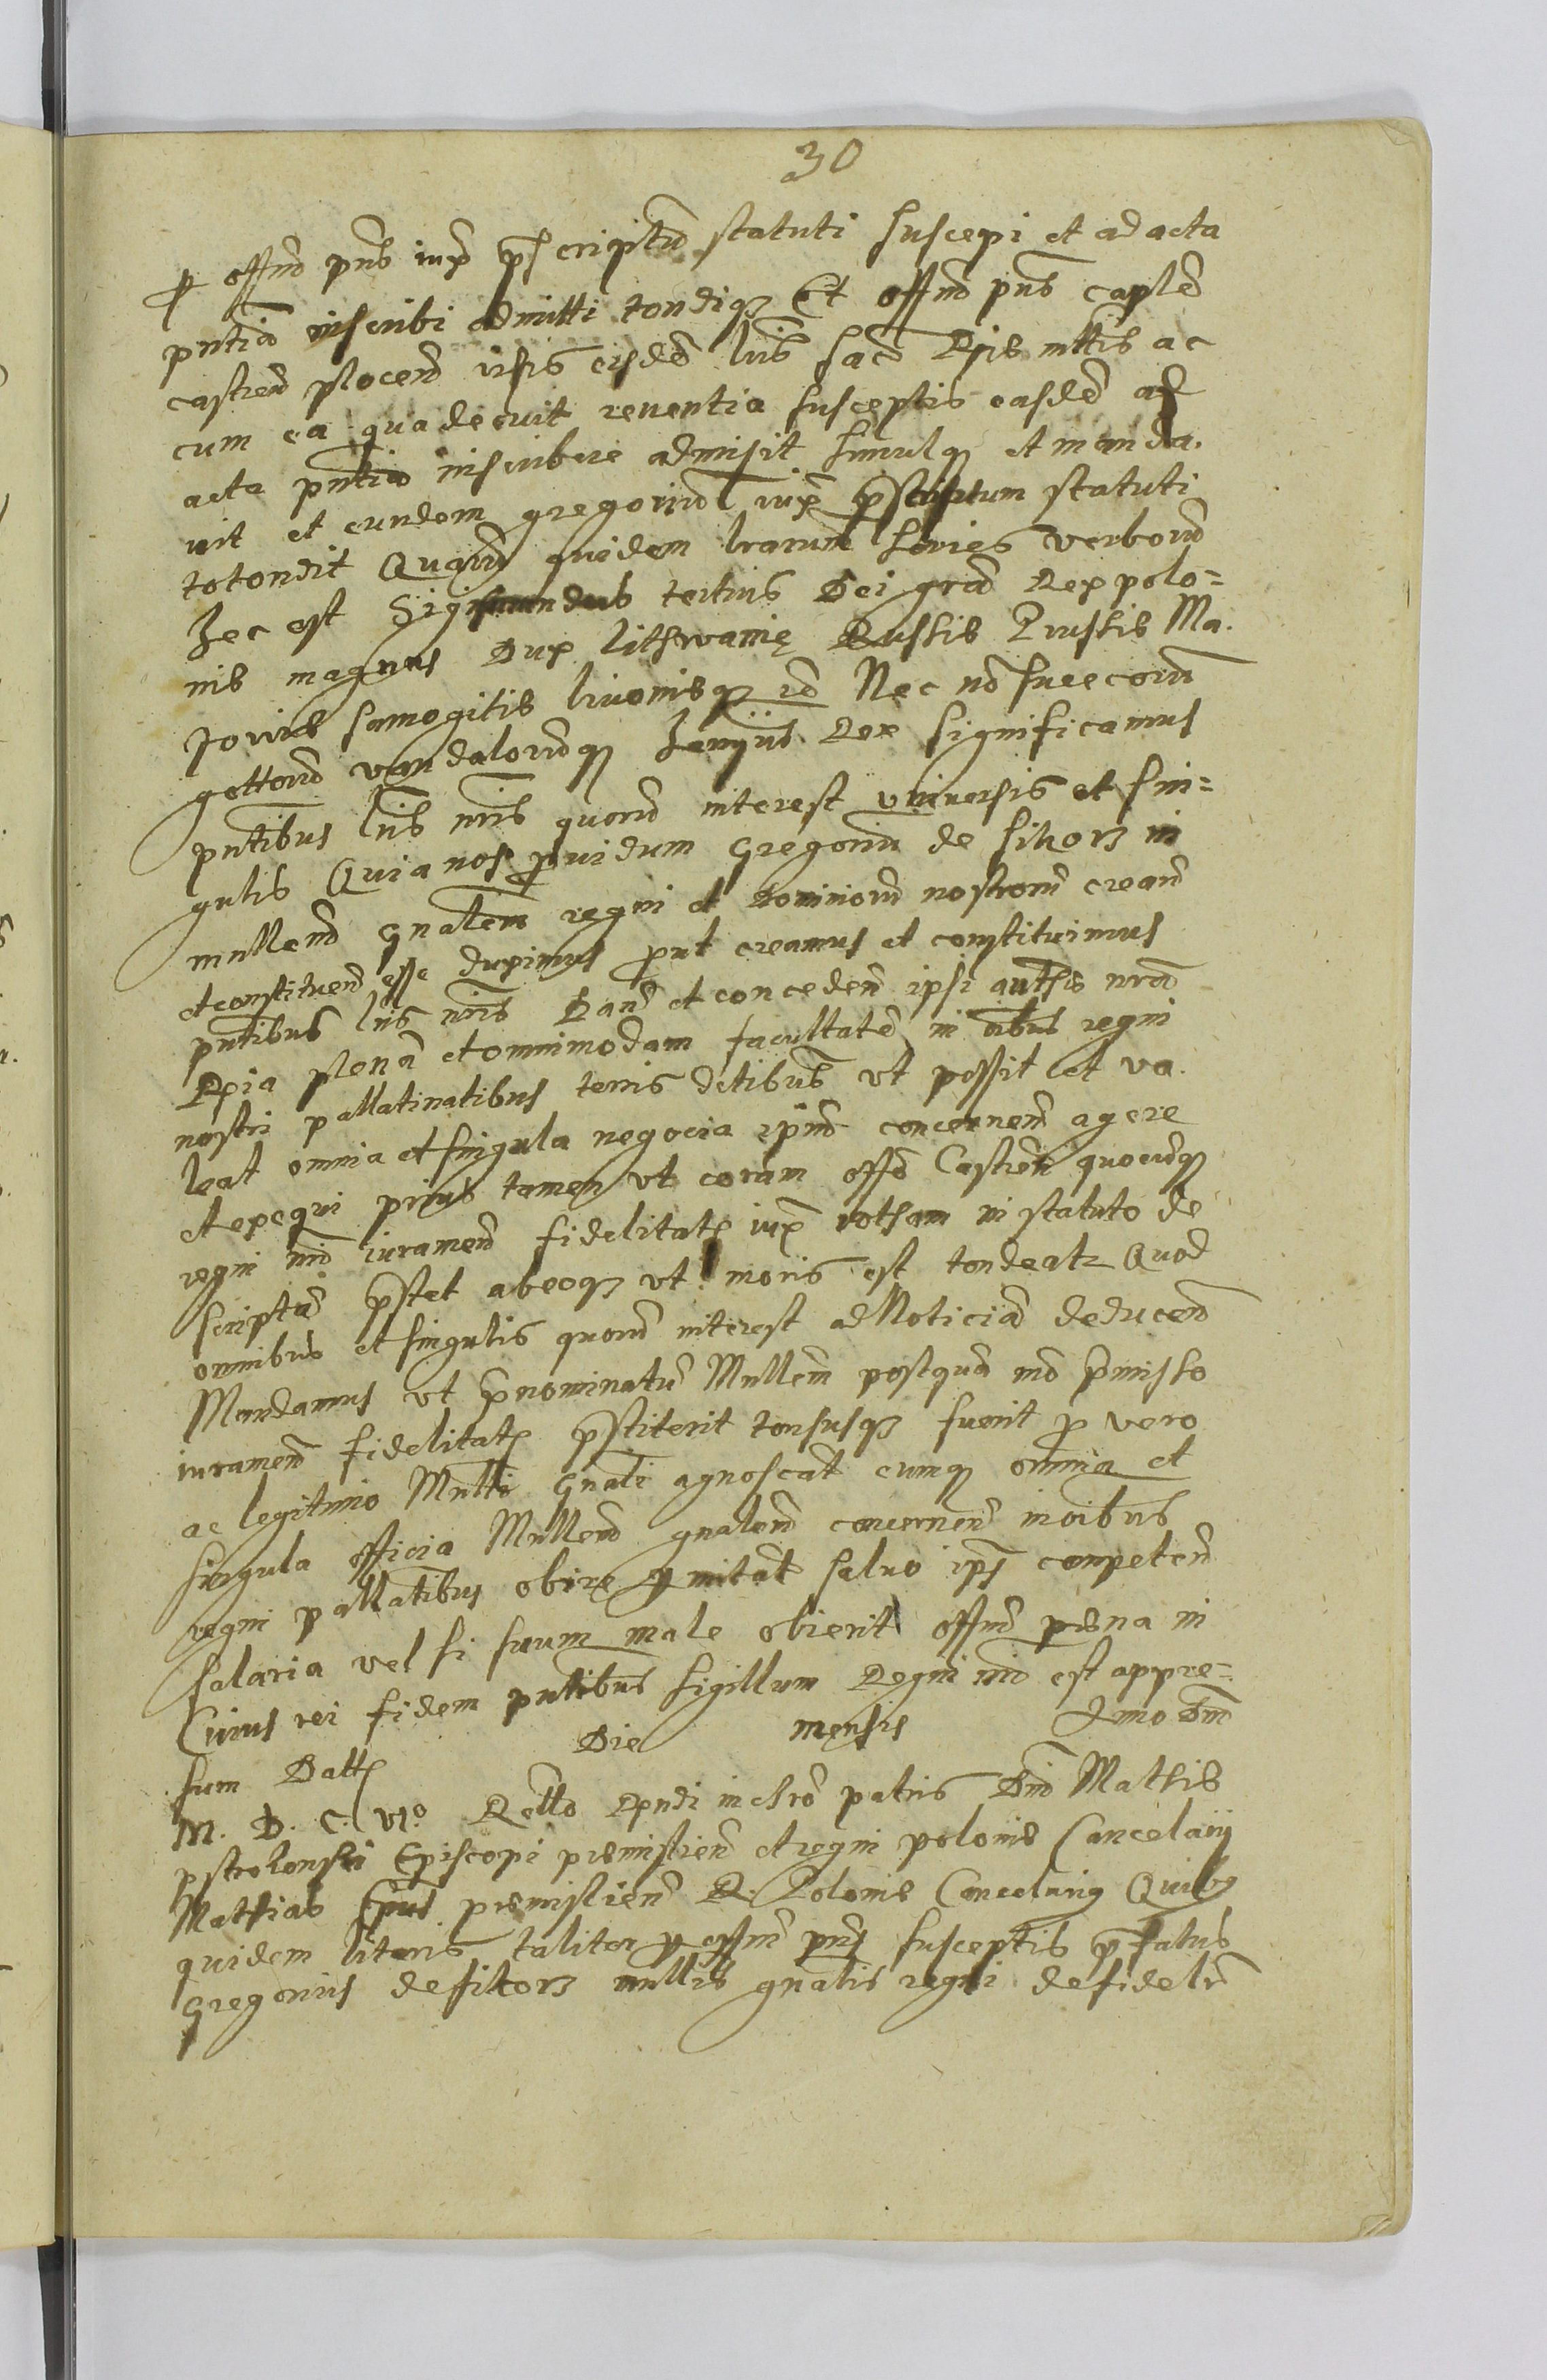 30
p offm pns iux pscriptũ statuti suscepi et ad acta
pntia inscribi admitti tondiq3 Et offm pns capłe
castren plocen visis eisdẽ lris sac Rgie mttis ac
cum ea qua decuit reuentia susceptis easdẽ ad
acta pntia inscribere admisit simulq3 et manda.
uit et eundem gregoriũ iux pscriptum statuti
totondit Quarũ quidem lrarum series verborũ
hec est Sigismundus tertius Dei gra Rex polo=
nie magnus Dux lithwanię Russie Prussie Ma.
zouie samogitie liuonieq3 zc Nec nõ suecorũ
gottorũ vandalorũq3 hærȷus Rex significamus
pntibus lris nris quorũ interest vniuersis et sin=
gulis Quia nos prouidum Gregoriũ de sikorz in
mnllem gnalem regni et dominiorũ nostrorũ creand
et constituend esse duximus prout creamus et constituimus
pntibus lris nris Dand et conceden ipsi authte nra
Rgia plenã et omnimodam facultatẽ in oibus regni
nostri pallatinatibus terris ditibus vt possit et va.
leat omnia et singula negocia ipm concernen agere
et exequi prius tamen vt coram offo Castren quocũq3
regni nri iuramen fidelitatis iux rotham in statuto de
scriptã prestet abeoq3 vt moris est tondeatr Quod
omnibus et singulis quorũ interest ad Noticiã deducen
Mandamus vt prenominatũ Mnllem postquã mõ premisso
iuramen fidelitatis prestiterit tonsusq3 fuerit pro vero
ac legitimo Mnlli Gnali agnoscãt eumq3 omnia et
singula officia Mnllem gnalem concernen in oibus
regni pallatibus obire pmitãt saluo ipsi competen
salaria vel si suum male obierit offm pena in
Cuius rei fidem pntibus sigillum Regni nri est appre=
sum Datt Die mensis Anno Dni
M. D. C. VI° Rello Rgndi in chro patris Dni Mathie
pstrokonski Episcopi premislien et regni polonie Cancelarij
Mathias Epus premislien R. Polonie Cancelarius Quibus
quidem literis taliter p offm pns susceptis prefatus
Gregorius de sikorz mnllis gnalis regni de fideli